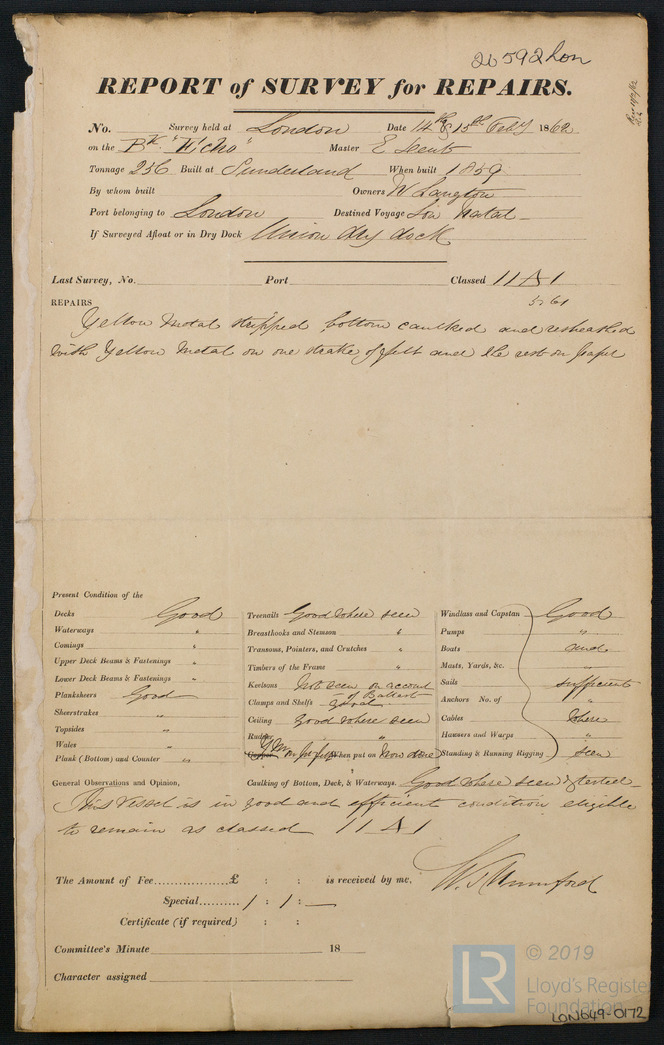 26592 Lon
REPORT of SURVEY for REPAIRS.
No. Survey held at London Date 14th & 15th Feby 1862
on the Bk "Echo" Master E
Tonnage 256 Built at Sunderland When built 1859
By whom built Owners W Langton
Port belonging to London Destined Voyage Natal
If Surveyed Afloat or in Dry Dock Union dry dock
Last Survey, No. Port Classed 11 A 1
5.61
REPAIRS
Yellow Metal stripped bottom caulked and resheathed
with Yellow Metal on one strake of felt and the rest on paper
Present Condition of the
Decks Good
Waterways "
Comings "
Upper Deck Beams & Fastenings "
Lower Deck Beams & Fastenings "
Planksheers Good
Sheerstrakes "
Topsides "
Wales "
Plank (Bottom) and Counter "
Treenails Good where seen
Breasthooks and Stemson "
Transoms, Pointers, and Crutches "
Timbers of the Frame "
Keelsons Not seen on account of Ballast
Clamps and Shelfs good
Ceiling Good where seen
Rudder "
Copper Y M on paper When put on Now done
Caulking of Bottom, Deck, & Waterways. Good where seen & tested
Windlass and Capstan Good
Pumps "
Boats and
Masts, Yards, &c. "
Sails sufficient
Anchors No. of "
Cables where
Hawsers and Warps "
Standing & Running Rigging seen
General Observations and Opinion,
This Vessel is in good and efficient condition eligible
to remain as classed 11 A 1
The Amount of Fee................£ : : is received by me.
Special.......... 1 : 1 : —
W. J. Mumford
Certificate (if required) : :
Committee's Minute 18
Character assigned
LR © 2019
Lloyd's Register
Foundation
LON649-0172